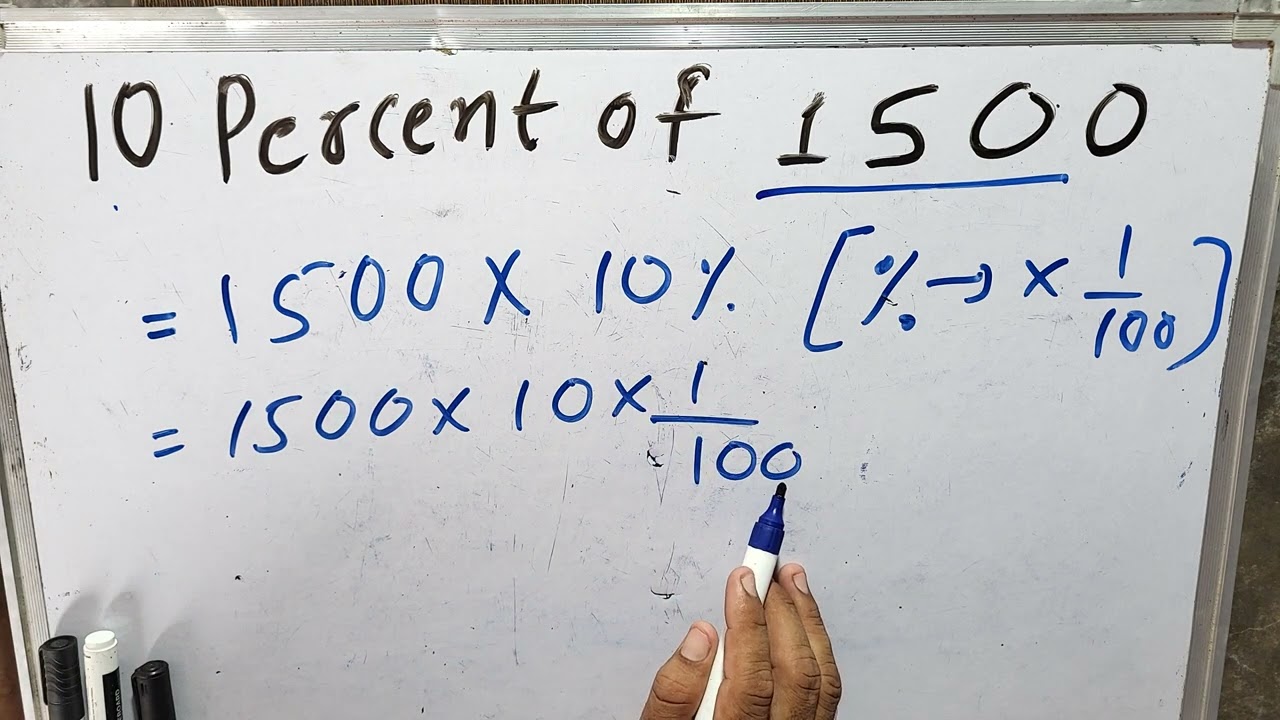 10 Percent of 1500
= 1500 × 10% [% → × 1/100)
= 1500 × 10 × 1/100